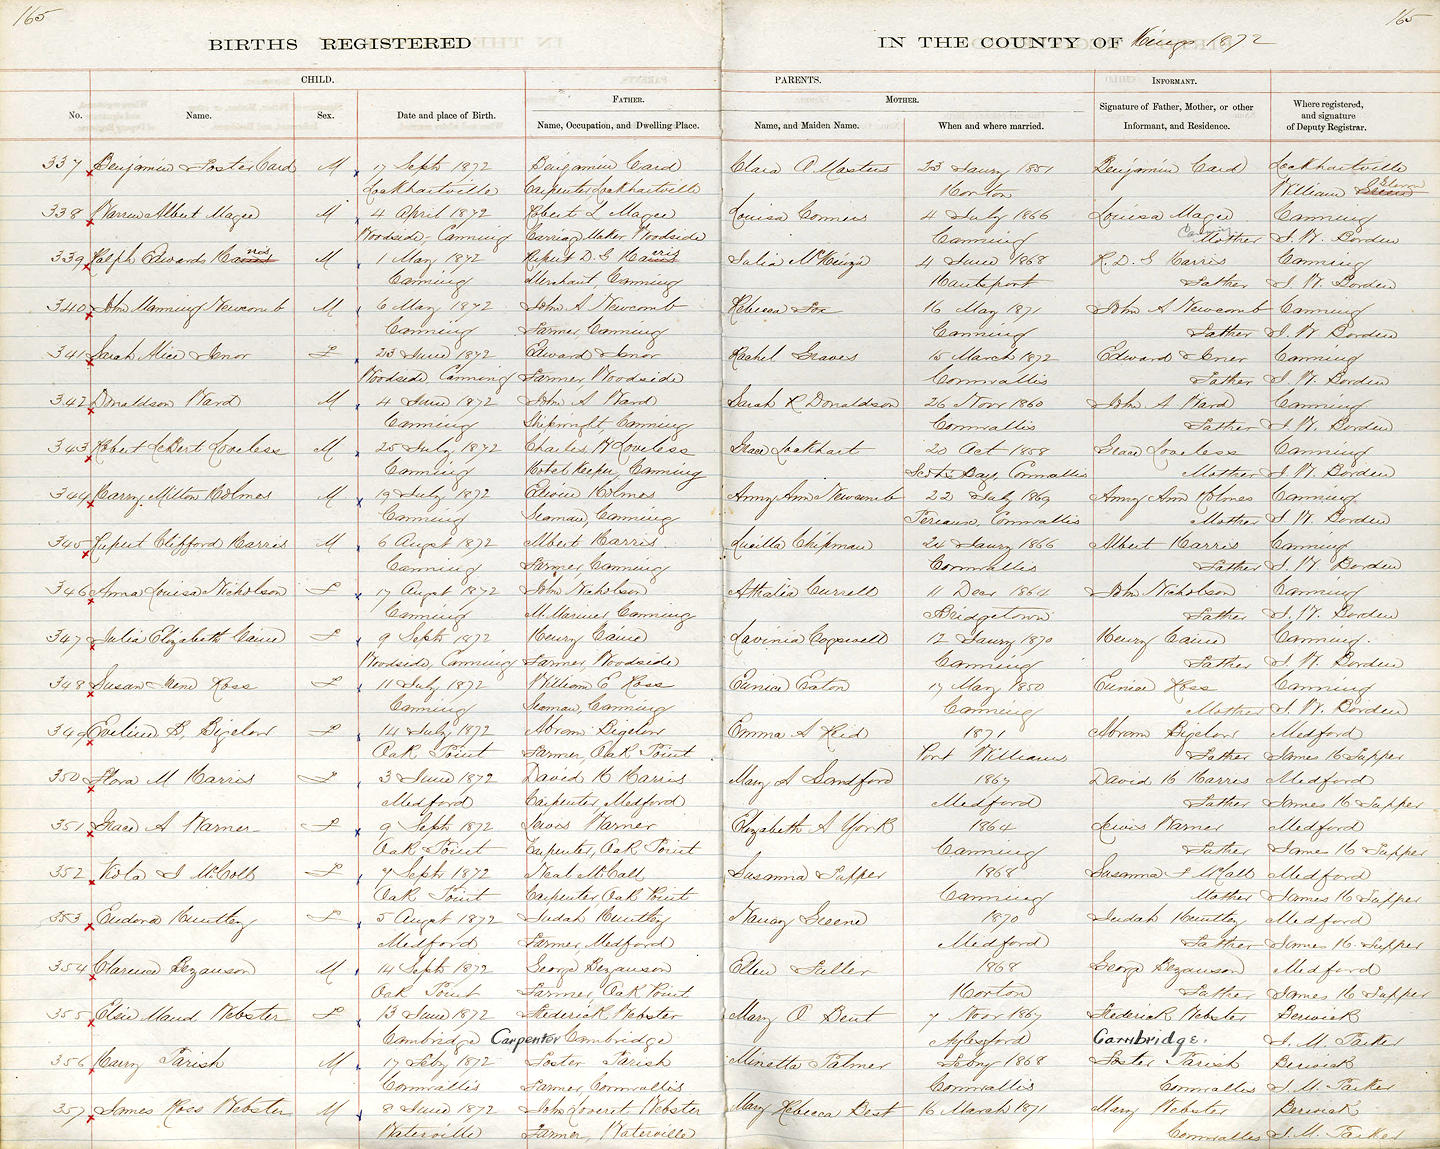 165
165
BIRTHS REGISTERED
IN THE COUNTY OF Kings 1872
CHILD.
PARENTS.
INFORMANT.
FATHER.
MOTHER.
No.
Name.
Sex.
Date and place of Birth.
Name, Occupation, and Dwelling Place.
Name, and Maiden Name.
When and where married.
Signature of Father, Mother, or other Informant, and Residence.
Where registered, and signature of Deputy Registrar.
337 Benjamin Foster Card M 17 Sept 1872 Benjamin Card Clara O Masters 23 Janry 1851 Benjamin Card Lockhartville
Lockhartville Carpenter Lockhartville Horton William
338 Warren Albert Magee M 4 April 1872 Albert L Magee Louisa Conners 4 July 1866 Louisa Magee Canning
Woodside, Canning Carriage Maker Woodside Canning Canning Mother J. W. Borden
339 Ralph Edwards Harris M 1 May 1872 Rupert D. G Harris Julia McKinzie 4 June 1868 R. D. G Harris Canning
Canning Merchant, Canning Hantsport Father J. W. Borden
340 John Manning Newcomb M 6 May 1872 John A Newcomb Rebecca Fox 16 May 1871 John A Newcomb Canning
Canning Farmer, Canning Canning Father J. W. Borden
341 Sarah Alice Jenor F 23 June 1872 Edward Jenor Rachel Graves 15 March 1872 Edward Jener Canning
Woodside, Canning Farmer, Woodside Cornwallis Father J. W. Borden
342 Donaldson Ward M 4 June 1872 John A Ward Sarah R Donaldson 26 Novr 1860 John A Ward Canning
Canning Shipwright, Canning Cornwallis Father J. W. Borden
343 Robert LeBert Loveless M 25 July 1872 Charles H Loveless Grace Lockhart 20 Oct 1858 Grace Loveless Canning
Canning Hotel Keeper, Canning Scots Bay, Cornwallis Mother J. W. Borden
344 Harry Milton Holmes M 19 July 1872 Edwin Holmes Anny Ann Newcomb 22 July 1869 Anny Ann Holmes Canning
Canning Seaman, Canning Pereaux, Cornwallis Mother J. W. Borden
345 Rupert Clifford Harris M 6 Augst 1872 Albert Harris Lucilla Chipman 24 Janry 1866 Albert Harris Canning
Canning Farmer Canning Cornwallis Father J. W. Borden
346 Anna Louisa Nicholson F 17 Augst 1872 John Nicholson Athalia Currell 11 Decr 1864 John Nicholson Canning
Canning M. Mariner Canning Bridgetown Father J. W. Borden
347 Julia Elizabeth Caine F 9 Sept 1872 Henry Caine Lavinia Cogswell 12 Janry 1870 Henry Caine Canning.
Woodside, Canning Farmer, Woodside Canning Father J. W. Borden
348 Susan Irene Ross F 11 July 1872 William E Ross Eunice Eaton 17 May 1850 Eunice Ross Canning
Canning Seaman, Canning Canning Mother J. W. Borden
349 Eveline B. Bigelow F 14 July 1872 Abram Bigelow Emma A Kid 1871 Abram Bigelow Medford
Oak Point Farmer, Oak Point Port Williams Father James H Tupper
350 Flora M Harris F 3 June 1872 David H Harris Mary A Sandford 1867 David H Harris Medford
Medford Carpenter, Medford Medford Father James H Tupper
351 Grace A Warner F 9 Sept 1872 Lewis Warner Elizabeth A York 1864 Lewis Warner Medford
Oak Point Carpenter, Oak Point Canning Father James H Tupper
352 Viola J McColl F 7 Sept 1872 Neal McCall Susanna Tupper 1868 Susanna J McCall Medford
Oak Point Carpenter Oak Point Canning Mother James H Tupper
353 Eudora Huntley F 5 Augst 1872 Judah Huntley Nancy Greene 1870 Judah Huntley Medford
Medford Farmer, Medford Medford Father James H. Tupper
354 Clarence Bezanson M 14 Sept 1872 George Bezanson Ellen Fuller 1868 George Bezanson Medford
Oak Point Farmer, Oak Point Horton Father James H Tupper
355 Elsie Maud Webster F 13 June 1872 Frederick Webster Mary O Bent 7 Novr 1867 Frederick Webster Berwick
Cambridge Carpenter Cambridge Aylesford Cambridge. J. M. Parker
356 Harry Parish M 17 Feby 1872 Foster Parish Minetta Palmer Febry 1868 Foster Parish Berwick
Cornwallis Farmer Cornwallis Cornwallis Cornwallis J. M. Parker
357 James Ross Webster M 8 June 1872 John Loveret Webster Mary Rebecca Best 16 March 1871 Mary Webster Berwick
Waterville Farmer, Waterville Cornwallis J. M. Parker